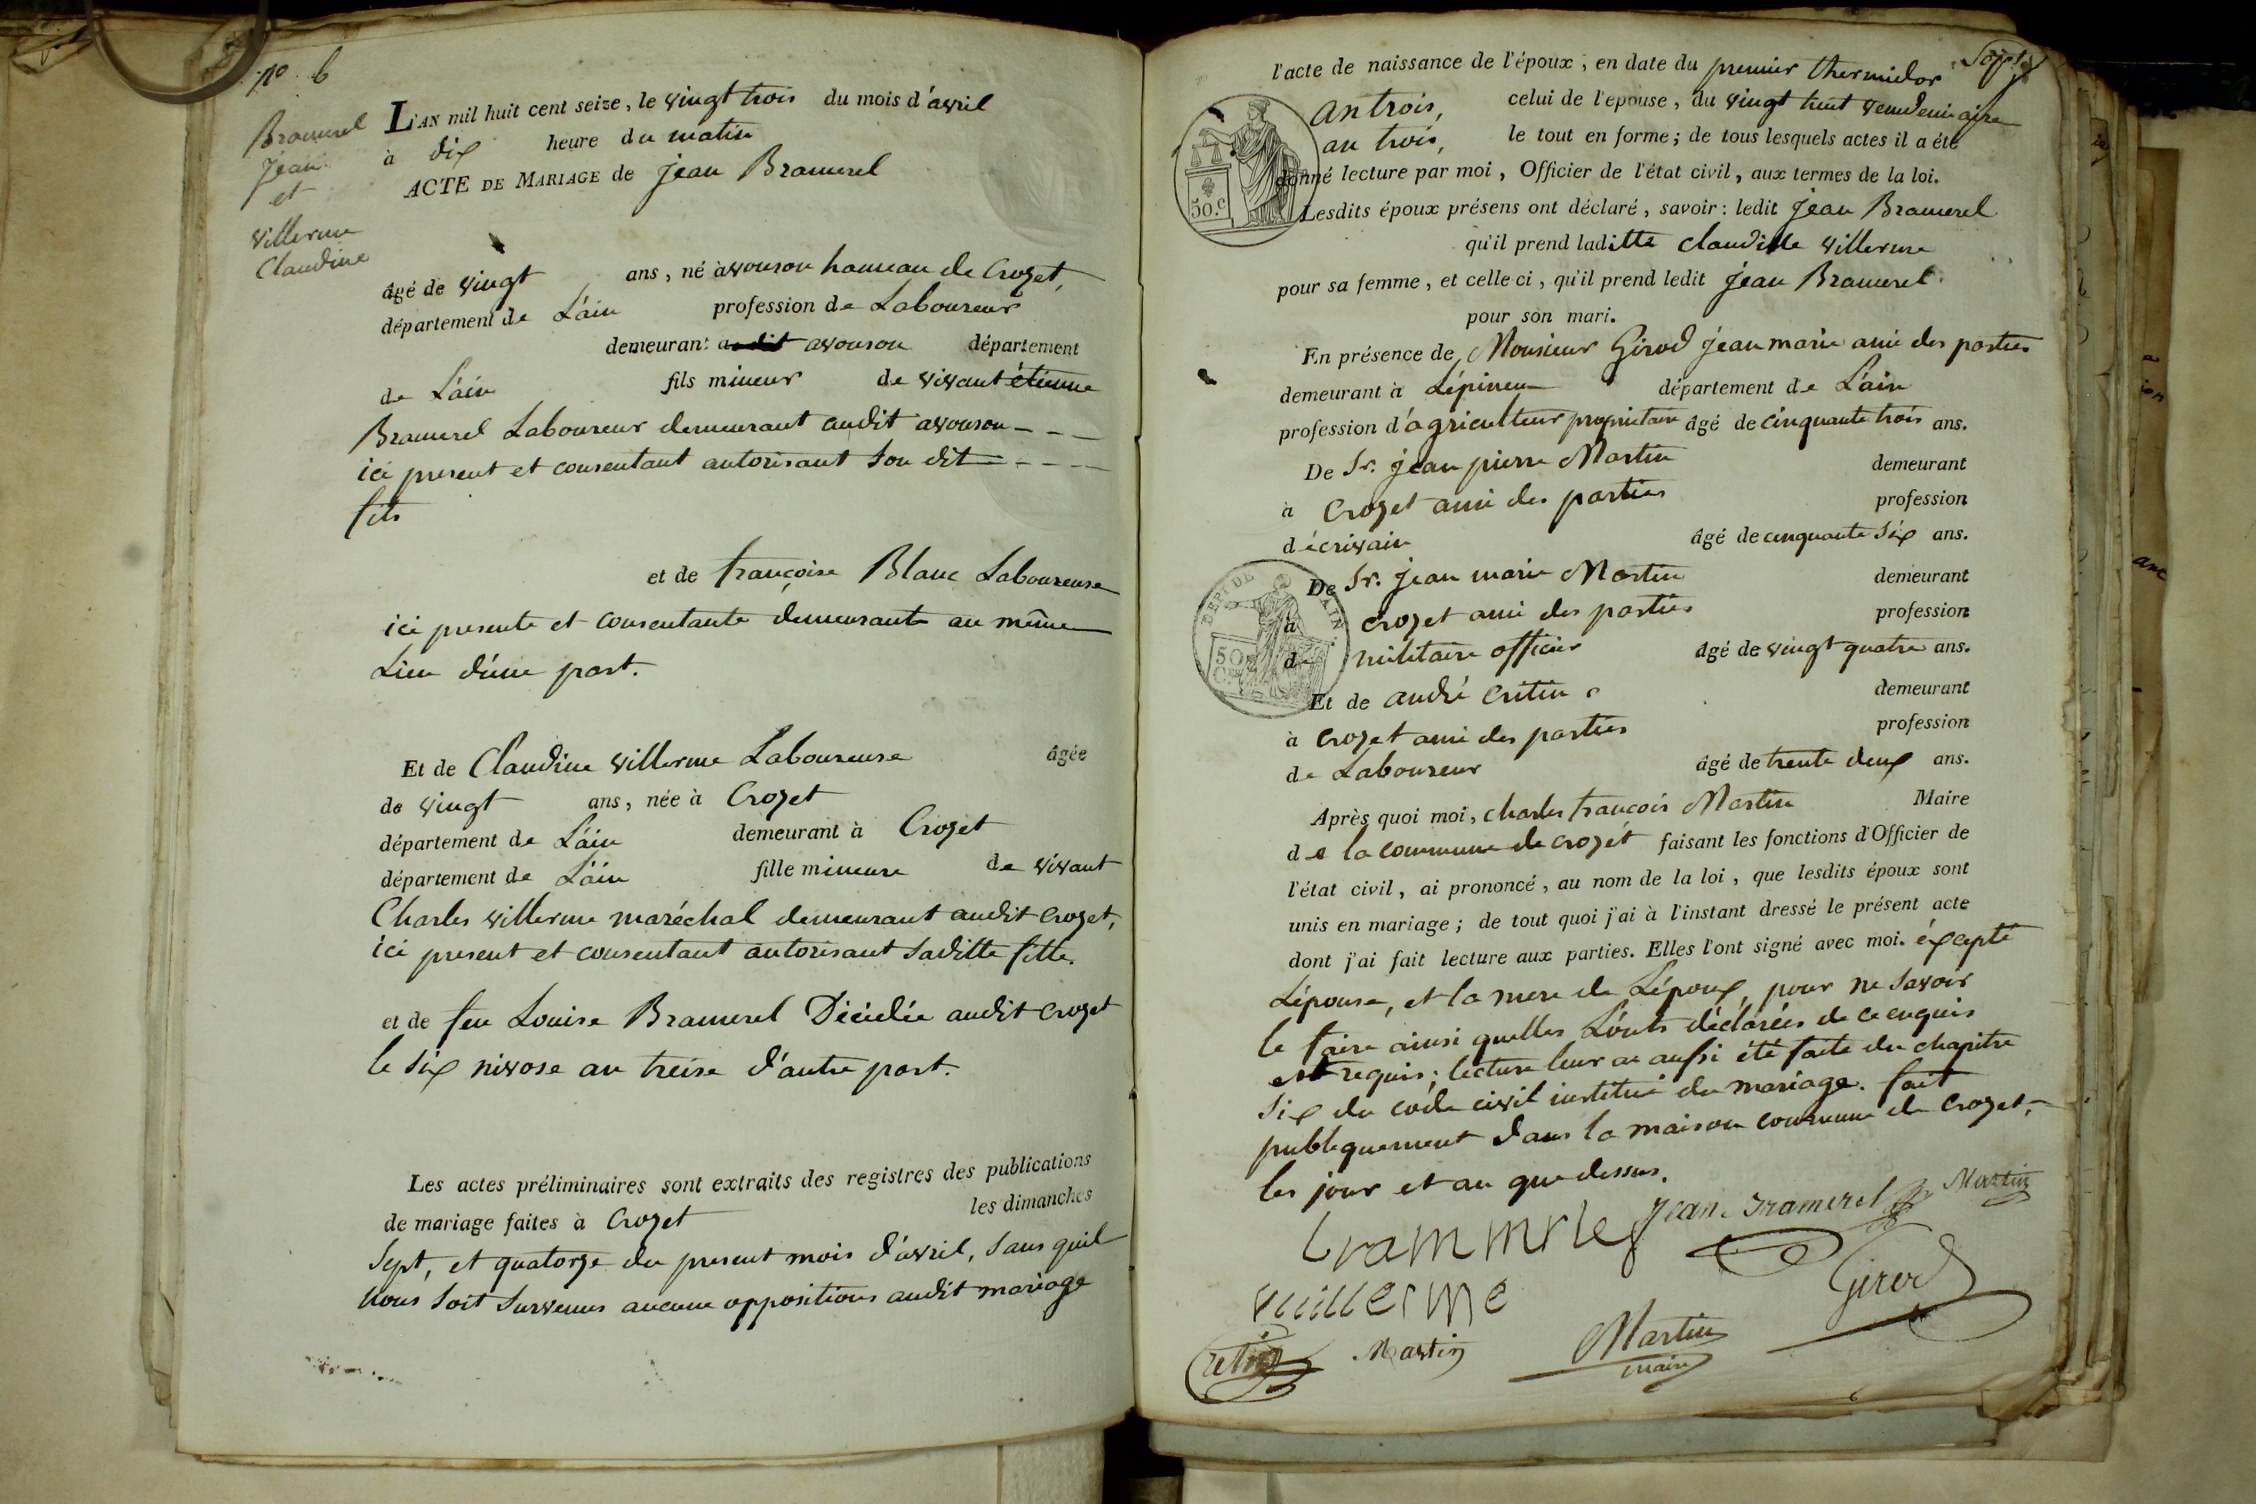 nº. 6
Bramerel
Jean
et
Villerme
Claudine
L'AN mil huit cent seize, le vingt trois du mois d'avril
à dix heure du matin
ACTE DE MARIAGE de Jean Bramerel
âgé de vingt ans, né à avouson hameau de Crozet,
département de L'ain profession de Laboureur
demeurant avouson département
de L'ain fils mineur de vivant étienne
Bramerel Laboureur demeurant audit avouson
ici present et consentant autorisant son dit
fils
et de françoise Blanc Laboureuse
ici presente et consentante demeurante au même
Lieu d'une part.
Et de Claudine villerme Laboureuse âgée
de vingt ans, née à Crozet
département de L'ain demeurant à Crozet
département de L'ain fille mineure de vivant
Charles villerme maréchal demeurant audit crozet,
ici present et consentant autorisant saditte fille.
et de feu Louise Bramerel Décédée audit crozet
le six nivose an treise d'autre part.
Les actes préliminaires sont extraits des registres des publications
de mariage faites à Crozet les dimanches
Sept, et quatorze du present mois d'avril, sans quil
nous soit survenus aucune oppositions audit mariage
Sept
l'acte de naissance de l'époux, en date du premier thermidor
an trois, celui de l'épouse, du vingt huit vendemiaire
an trois, le tout en forme; de tous lesquels actes il a été
donné lecture par moi, Officier de l'état civil, aux termes de la loi.
50.c
Lesdits époux présens ont déclaré, savoir: ledit Jean Bramerel
qu'il prend laditte claudine villerme
pour sa femme, et celle ci, qu'il prend ledit Jean Bramerel
pour son mari.
En présence de Monsieur Girod jean marie ami des parties
demeurant à Lépineux département de L'ain
profession d'agriculteur proprietaire âgé de cinquante trois ans.
De Sr. jean pierre Martin demeurant
à Crozet ami des parties profession
d'écrivain âgé de cinquante six ans.
De Sr. jean marie Martin demeurant
à crozet ami des parties profession
de militaire officier âgé de vingt quatre ans.
DEPT DE L'AIN.
50
Et de andré critin demeurant
à crozet ami des parties profession
de Laboureur âgé de trente deux ans.
Après quoi moi, charles francois Martin Maire
de la commune de crozet faisant les fonctions d'Officier de
l'état civil, ai prononcé, au nom de la loi, que lesdits époux sont
unis en mariage; de tout quoi j'ai à l'instant dressé le présent acte
dont j'ai fait lecture aux parties. Elles l'ont signé avec moi. éxcepté
Lépouse, et la mere de Lépoux, pour ne savoir
le faire ainsi quelles L'onts déclarées de ce enquis
et requis; lecture leur a aussi été faite du chapitre
six du code civil institué du mariage. fait
publiquement dans la maison commune de crozet,
les jour et an que dessus.
Jean Bramerel Martin
Brammrle
Girod
vuillerme
Cretin Martin Martin
maire